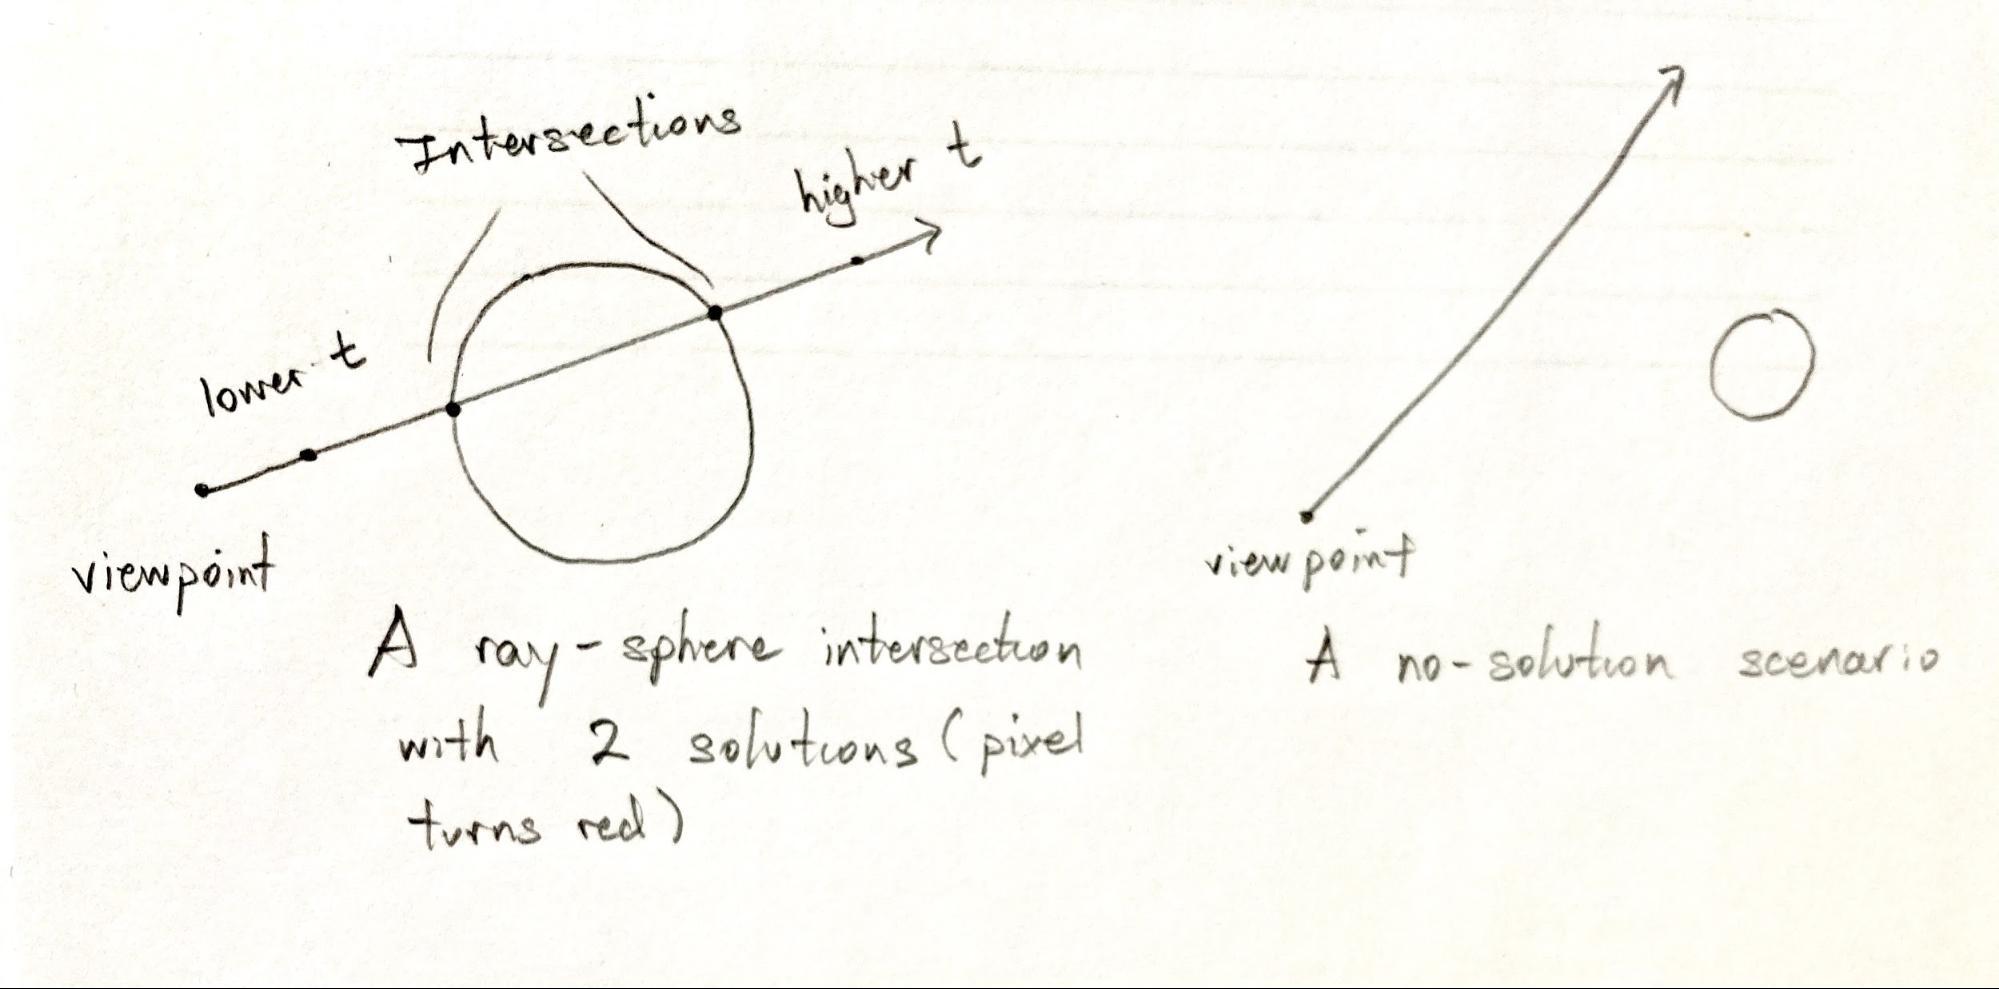 Intersections
higher t
lower t
viewpoint
A ray-sphere intersection
with 2 solutions (pixel
turns red)
viewpoint
A no-solution scenario